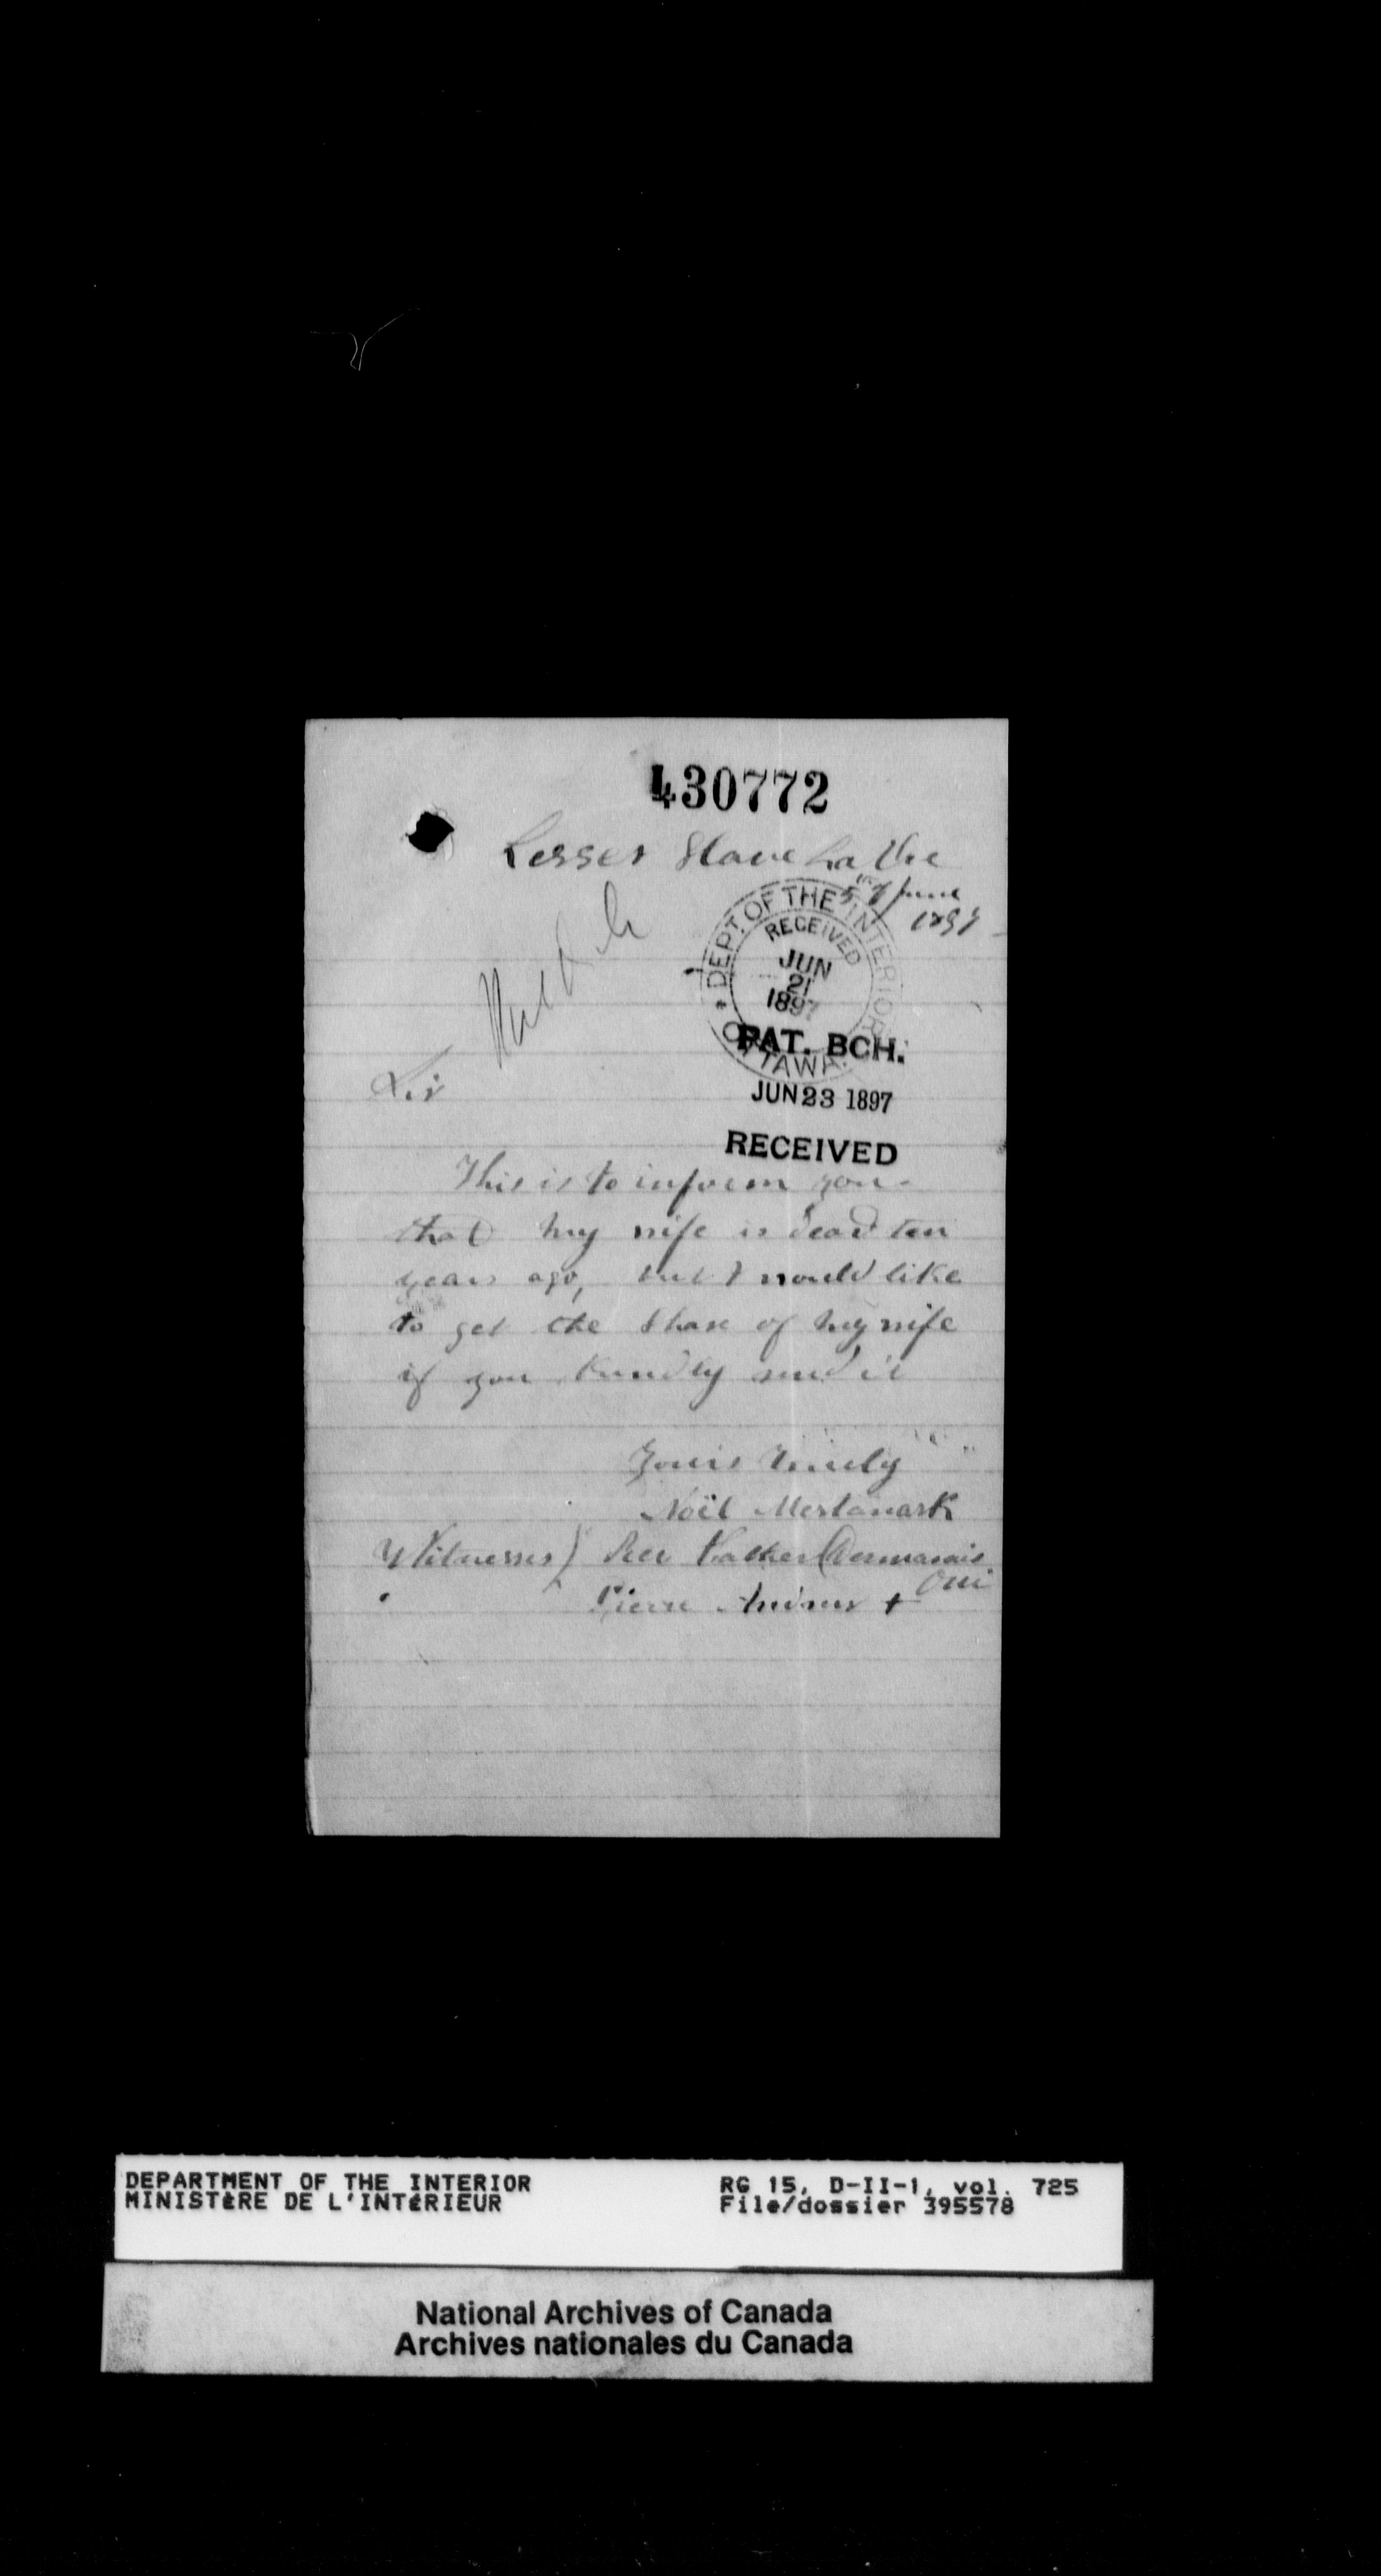 430772
Lesser Slave Lake
5th June
1897
DEPT. OF THE INTERIOR
RECEIVED
JUN
21
1897
OTTAWA.
PAT. BCH.
JUN 23 1897
RECEIVED
Sir
This is to inform you
that my wife is dead ten
years ago, but I would like
to get the share of my wife
if you kindly send it
Yours truly
Noël
Witnesses) Rev Father Desmarais
OMI
Pierre +
DEPARTMENT OF THE INTERIOR
MINISTÈRE DE L'INTÉRIEUR
RG 15, D-II-1, vol. 725
File/dossier 395578
National Archives of Canada
Archives nationales du Canada